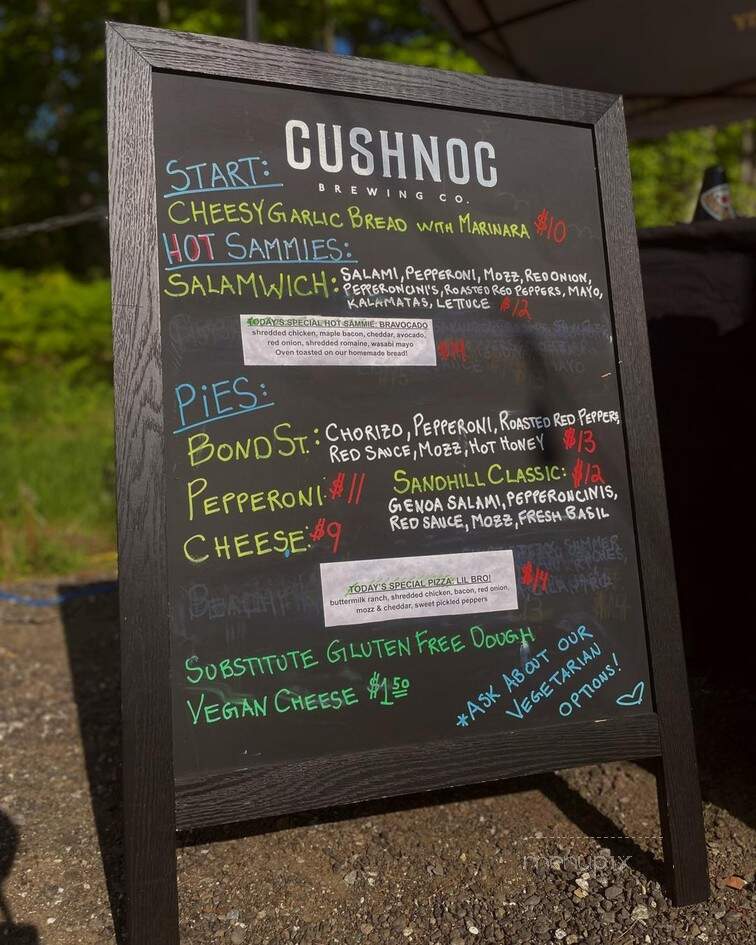 CUSHNOC
BREWING CO.
START:
CHEESY GARLIC BREAD WITH MARINARA $10
HOT SAMMIES:
SALAMWICH: SALAMI, PEPPERONI, MOZZ, RED ONION,
PEPPERONCINI'S, ROASTED RED PEPPERS, MAYO,
KALAMATAS, LETTUCE $12
TODAY'S SPECIAL HOT SAMMIE: BRAVOCADO
shredded chicken, maple bacon, cheddar, avocado,
red onion, shredded romaine, wasabi mayo
Oven toasted on our homemade bread!
$14
PiES:
BOND ST.: CHORIZO, PEPPERONI, ROASTED RED PEPPERS,
RED SAUCE, MOZZ, HOT HONEY $13
PEPPERONI: $11
SANDHILL CLASSIC: $12
GENOA SALAMI, PEPPERONCINIS,
RED SAUCE, MOZZ, FRESH BASIL
CHEESE: $9
TODAY'S SPECIAL PIZZA: LIL BRO!
buttermilk ranch, shredded chicken, bacon, red onion,
mozz & cheddar, sweet pickled peppers
$14
SUBSTITUTE GLUTEN FREE DOUGH
VEGAN CHEESE $1.50
*ASK ABOUT OUR
VEGETARIAN
OPTIONS!
menupix